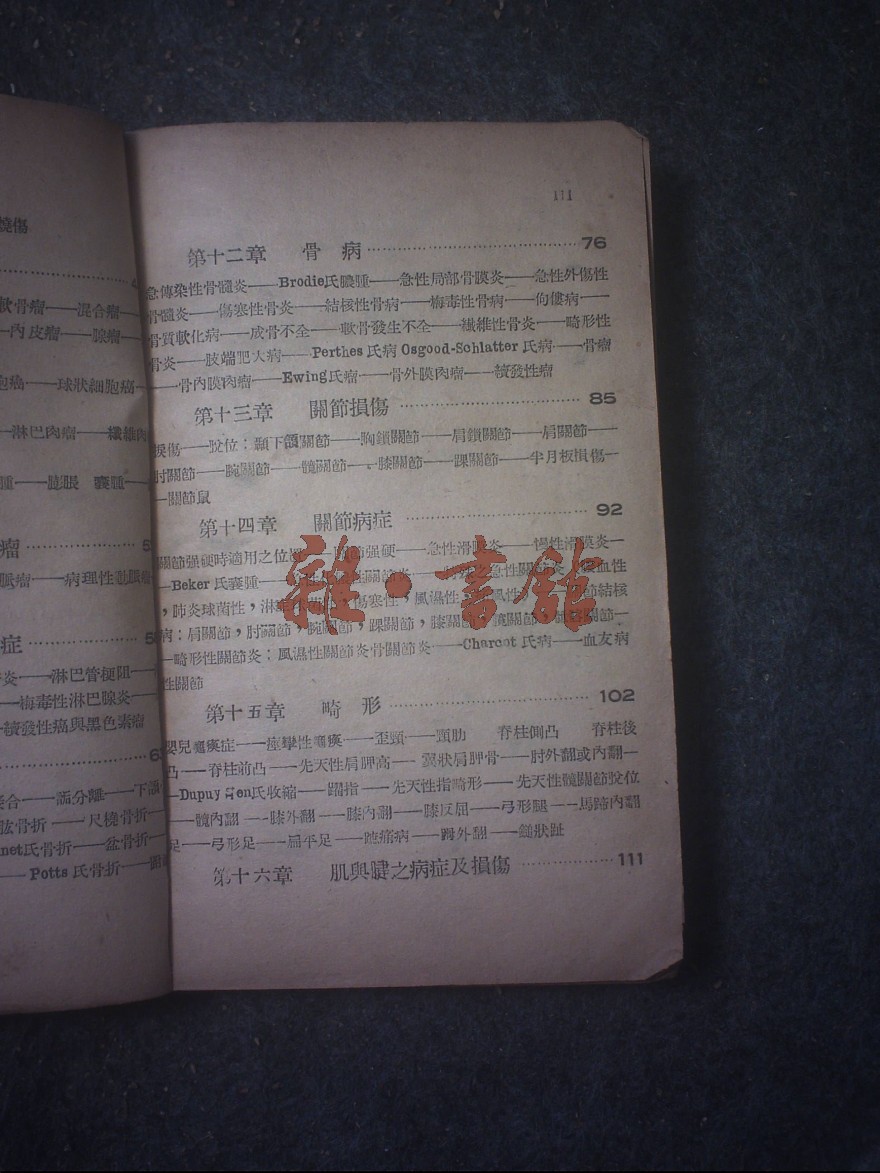 燒傷
軟骨瘤——混合瘤——
內皮瘤——腺瘤——
胞癌——球狀細胞癌——
淋巴肉瘤——纖維肉
腫——臆眼 囊腫——
瘤
脈瘤——病理性動脈瘤
症
炎——淋巴管梗阻——
——梅毒性淋巴腺炎——
——續發性癌與黑色素瘤
接合——骺分離——下頷
肱骨折——尺橈骨折——
net氏骨折——盆骨折——
——Potts 氏骨折——
111
第十二章 骨 病 76
急傳染性骨髓炎——Brodie氏膿腫——急性局部骨膜炎——急性外傷性
骨髓炎——傷寒性骨炎——結核性骨病——梅毒性骨病——佝僂病——
骨質軟化病——成骨不全——軟骨發生不全——纖維性骨炎——畸形性
骨炎——肢端肥大病——Perthes 氏病 Osgood-Schlatter 氏病——骨瘤
——骨內膜肉瘤——Ewing氏瘤——骨外膜肉瘤——續發性瘤
第十三章 關節損傷 85
捩傷——脫位：顳下頜關節——胸鎖關節——肩鎖關節——肩關節——
肘關節——腕關節——髖關節——膝關節——踝關節——半月板損傷——
—關節鼠
第十四章 關節病症 92
關節强硬時適用之位 ——關節强硬——急性滑膜炎——慢性滑膜炎—
—Beker 氏囊腫——性關節炎——急性關節炎 血性
，肺炎球菌性，淋 傷寒性，風濕性 風性 節結核
病：肩關節，肘關節，腕關節，踝關節，膝關 髖關節， 關節—
—畸形性關節炎：風濕性關節炎骨關節炎——Charcot 氏病——血友病
性關節
第十五章 畸 形 102
嬰兒癱瘓症——痙攣性癱瘓——歪頸——頸肋 脊柱側凸 脊柱後
凸——脊柱前凸——先天性肩胛高——翼狀肩胛骨——肘外翻或內翻—
—Dupuy en氏收縮——蹼指——先天性指畸形——先天性髖關節脫位
——髖內翻——膝外翻——膝內翻——膝反屈——弓形腿——馬蹄內翻
足——弓形足——扁平足——蹠痛病——踇外翻——鎚狀趾
第十六章 肌與腱之病症及損傷 111
雜·書館